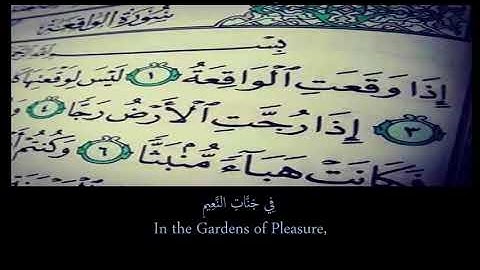 سُورَةُ الوَاقِعَةِ
إِذَا وَقَعَتِ ٱلْوَاقِعَةُ ١ لَيْسَ لِوَقْعَتِهَا
٣ إِذَا رُجَّتِ ٱلْأَرْضُ رَجًّا ٤
فَكَانَتْ هَبَآءً مُّنۢبَثًّا ٦ وَكُنتُمْ
فِي جَنَّاتِ النَّعِيمِ
In the Gardens of Pleasure,